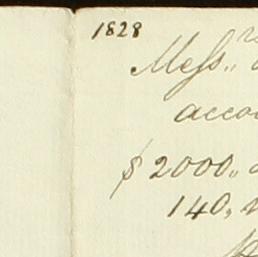 1828
Mess.,
acco
$2000.,
140.,